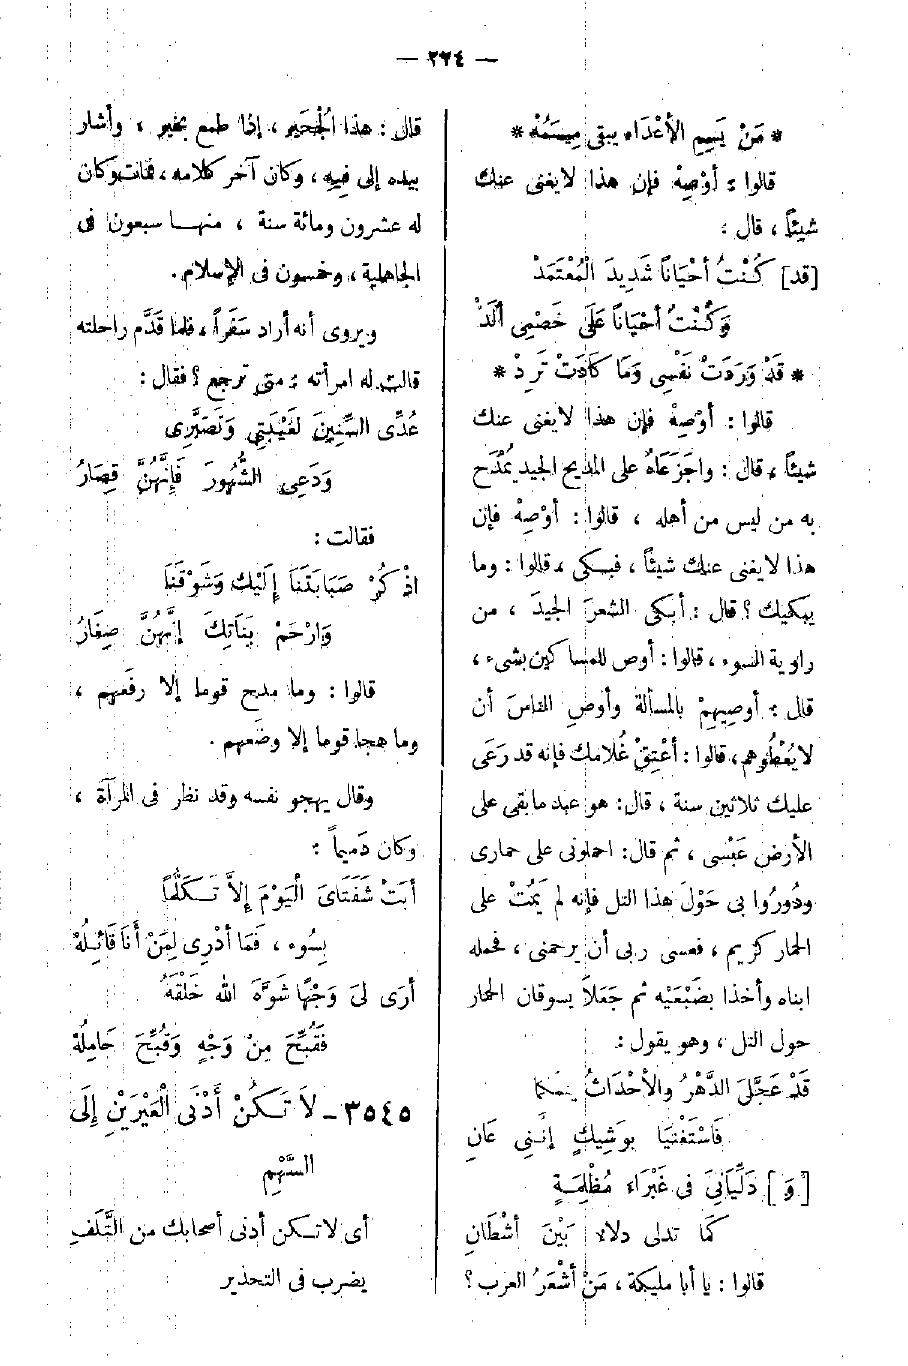 — ٢٢٤ —
* مَنْ يَسِمِ الأعْدَاء يبقى مِيسَمُهْ *
قالوا : أوْصِهْ فإن هذا لا يغنى عنك
شيئاً ، قال :
[قد] كُنْتُ أحْيَاناً شَدِيدَ الْمُعْتَمَدْ
وَكُنْتُ أحْيَاناً عَلَى خَصْمِى ألَدّْ
* قَدْ وَرَدَتْ نَفْسِى وَمَا كَادَتْ تَرِدْ *
قالوا : أوْصِهْ فإن هذا لا يغنى عنك
شيئاً ، قال : واجَزَعَاهُ على المديح الجيد يُمْدَح
به من ليس من أهله ، قالوا : أوْصِهْ فإن
هذا لا يغنى عنك شيئاً ، فبكى ، قالوا : وما
يبكيك ؟ قال : أبكى الشعرَ الجيدَ ، من
راوية السوء ، قالوا : أوص للمساكين بشىء ،
قال : أوصِيهِمْ بالمسألة وأوصِ الناسَ أن
لا يُعْطُوهم ، قالوا : أعْتِقْ غُلامك فإنه قد رَعَى
عليك ثلاثين سنة ، قال : هو عبد ما بقى على
الأرض عَبْسى ، ثم قال : احملونى على حمارى
ودُورُوا بى حَوْلَ هذا التل فإنه لم يَمُتْ على
الحمار كريم ، فعسى ربى أن يرحمنى ، فحمله
ابناه وأخذا بضَبْعَيْه ثم جَعَلاَ يسوقان الحمار
حول التل ، وهو يقول :
قَدْ عَجَّلَ الدَّهْرُ والأحْدَاثُ يتمكما
فَاسْتَغْنِيَا بوَشِيكٍ إنَّنِى عَانِ
[وَ] دَلِّيَانِىَ فى غَبْرَاءَ مُظْلِمَةٍ
كَمَا تدلى دلاء بَيْنَ أشْطَانِ
قالوا : يا أبا مليكة ، مَنْ أشْعَرُ العرب ؟
قال : هذا الْجُحَيْر ، إذا طمع بخير ، وأشار
بيده إلى فِيهِ ، وكان آخر كلامه ، فمات وكان
له عشرون ومائة سنة ، منها سبعون فى
الجاهلية ، وخمسون فى الإسلام .
ويروى أنه أراد سَفَراً ، فلما قَدَّم راحلته
قالت له امرأته : متى ترجع ؟ فقال :
عُدِّى السِّنِينَ لغَيْبَتِى وَتَصَبَّرِى
وَدَعِى الشُّهُورَ فَإِنَّهُنَّ قِصَارُ
فقالت :
اذْكُرْ صَبَابَتَنَا إِلَيْكَ وَشَوْقَنَا
وَارْحَمْ بَنَاتِكَ إنَّهُنَّ صِغَارُ
قالوا : وما مدح قوما إلا رفَعهم ،
وما هجا قوما إلا وضَعهم .
وقال يهجو نفسه وقد نظر فى المرآة ،
وكان دَمِيماً :
أبَتْ شَفَتَاىَ الْيَوْمَ إلاَّ تَكَلُّماً
بِسُوء ، فَمَا أدْرِى لِمَنْ أنَا قَائِلُهْ
أرَى لىَ وَجْهاً شَوَّهَ الله خَلْقَهُ
فَقُبِّحَ مِنْ وَجْهٍ وَقُبِّحَ حَامِلُهْ
٣٥٤٥ - لاَ تَكُنْ أَدْنَى الْعَيْرَيْنِ إِلَى
السَّهْمِ
أى لا تكن أدنى أصحابك من التَّلَفِ
يضرب فى التحذير